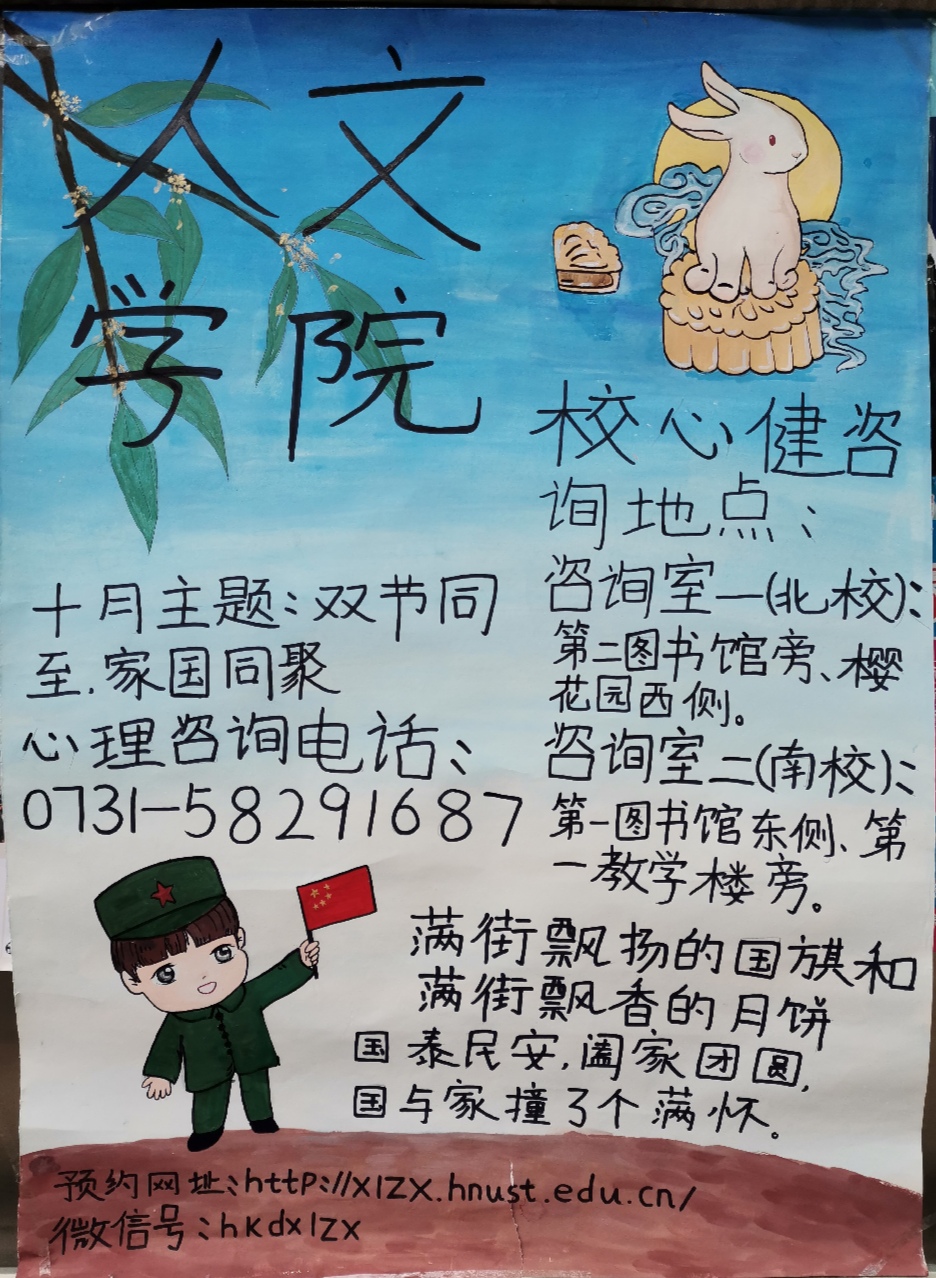 人文
学院
校心健咨
询地点：
咨询室一(北校)：
第二图书馆旁、樱
花园西侧。
咨询室二(南校)：
第一图书馆东侧、第
一教学楼旁。
十月主题：双节同
至，家国同聚
心理咨询电话：
0731-58291687
满街飘扬的国旗和
满街飘香的月饼
国泰民安，阖家团圆，
国与家撞了个满怀。
预约网址：http://xlzx.hnust.edu.cn/
微信号：hkdxlzx